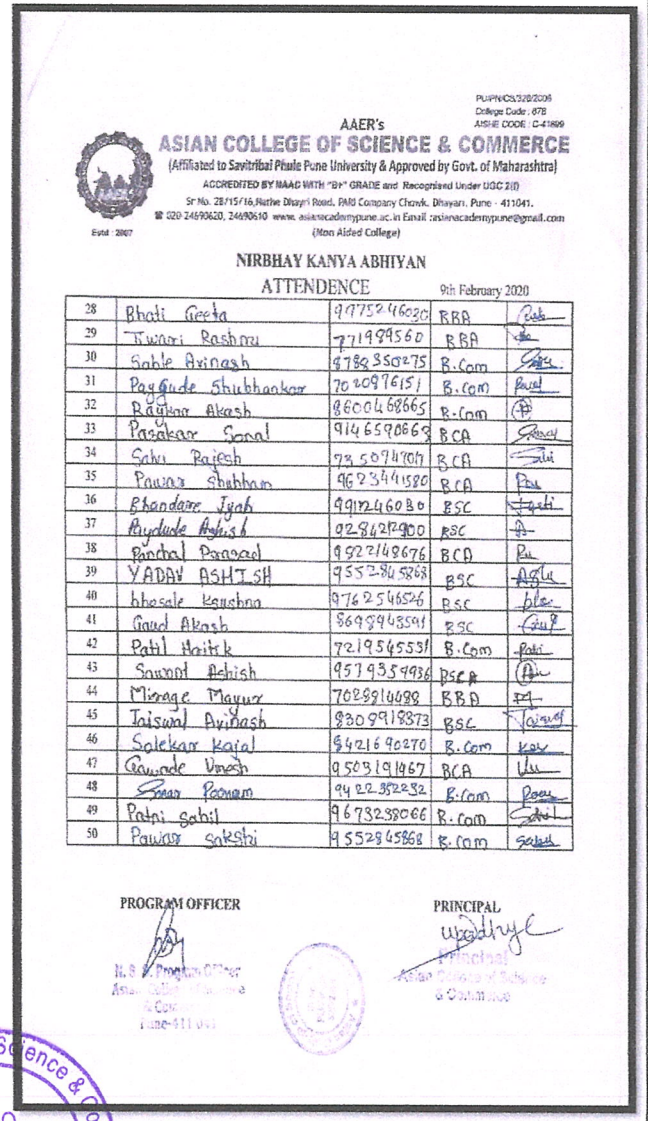 PU/PN/CS/326/2006
College Code : 878
AISHE CODE : C-41899
AAER's
ASIAN COLLEGE OF SCIENCE & COMMERCE
(Affiliated to Savitribai Phule Pune University & Approved by Govt. of Maharashtra)
ACCREDITED BY NAAC WITH "B+" GRADE and Recognised Under UGC 2(f)
Sr No. 28/15/16, Narhe Dhayri Road, PARI Company Chowk, Dhayari, Pune - 411041.
☎ 020-24690620, 24690610 www. asianacademypune.ac.in Email :asianacademypune@gmail.com
Estd : 2007
(Non Aided College)
NIRBHAY KANYA ABHIYAN
ATTENDENCE 9th February 2020
28 Bhati Geeta 9975246030 BBA
29 Tiwari Rashmi 771989560 BBA
30 Sable Avinash 8788350275 B.Com
31 Paygude Shubhankar 7020976151 B.Com
32 Raykar Akash 8600468665 B.Com
33 Pasakar Sonal 9146590663 BCA
34 Salvi Rajesh BCA
35 Pawar Shubham 9623441580 BCA
36 Bhandare 991246030 BSC
37 Ashish 928421900 BSC
38 Panchal Parasad 9822148676 BCA
39 YADAV ASHISH 9552845868 BSC
40 bhosale Krushna 9762546526 BSC
41 Gaud Akash 8698943591 BSC
42 Patil Haitik 7219545531 B.Com Patil
43 Sawant Ashish 9579359936
44 Mirage Mayur 7028914488 BBA
45 Jaiswal Avinash 8308918373 BSC Jaiswal
46 Salekar Kajal 8421690270 B.Com
47 Gawade Umesh 9503191967 BCA
48 Poonam 9422352232 B.Com
49 Patni Sahil 9673238066 B.Com
50 Pawar Sakshi 9552845868 B.Com
PROGRAM OFFICER PRINCIPAL
N. S. S. Program Officer
Asian College of Science
& Commerce
Pune-411 041
Principal
Asian College of Science
& Commerce
Science &